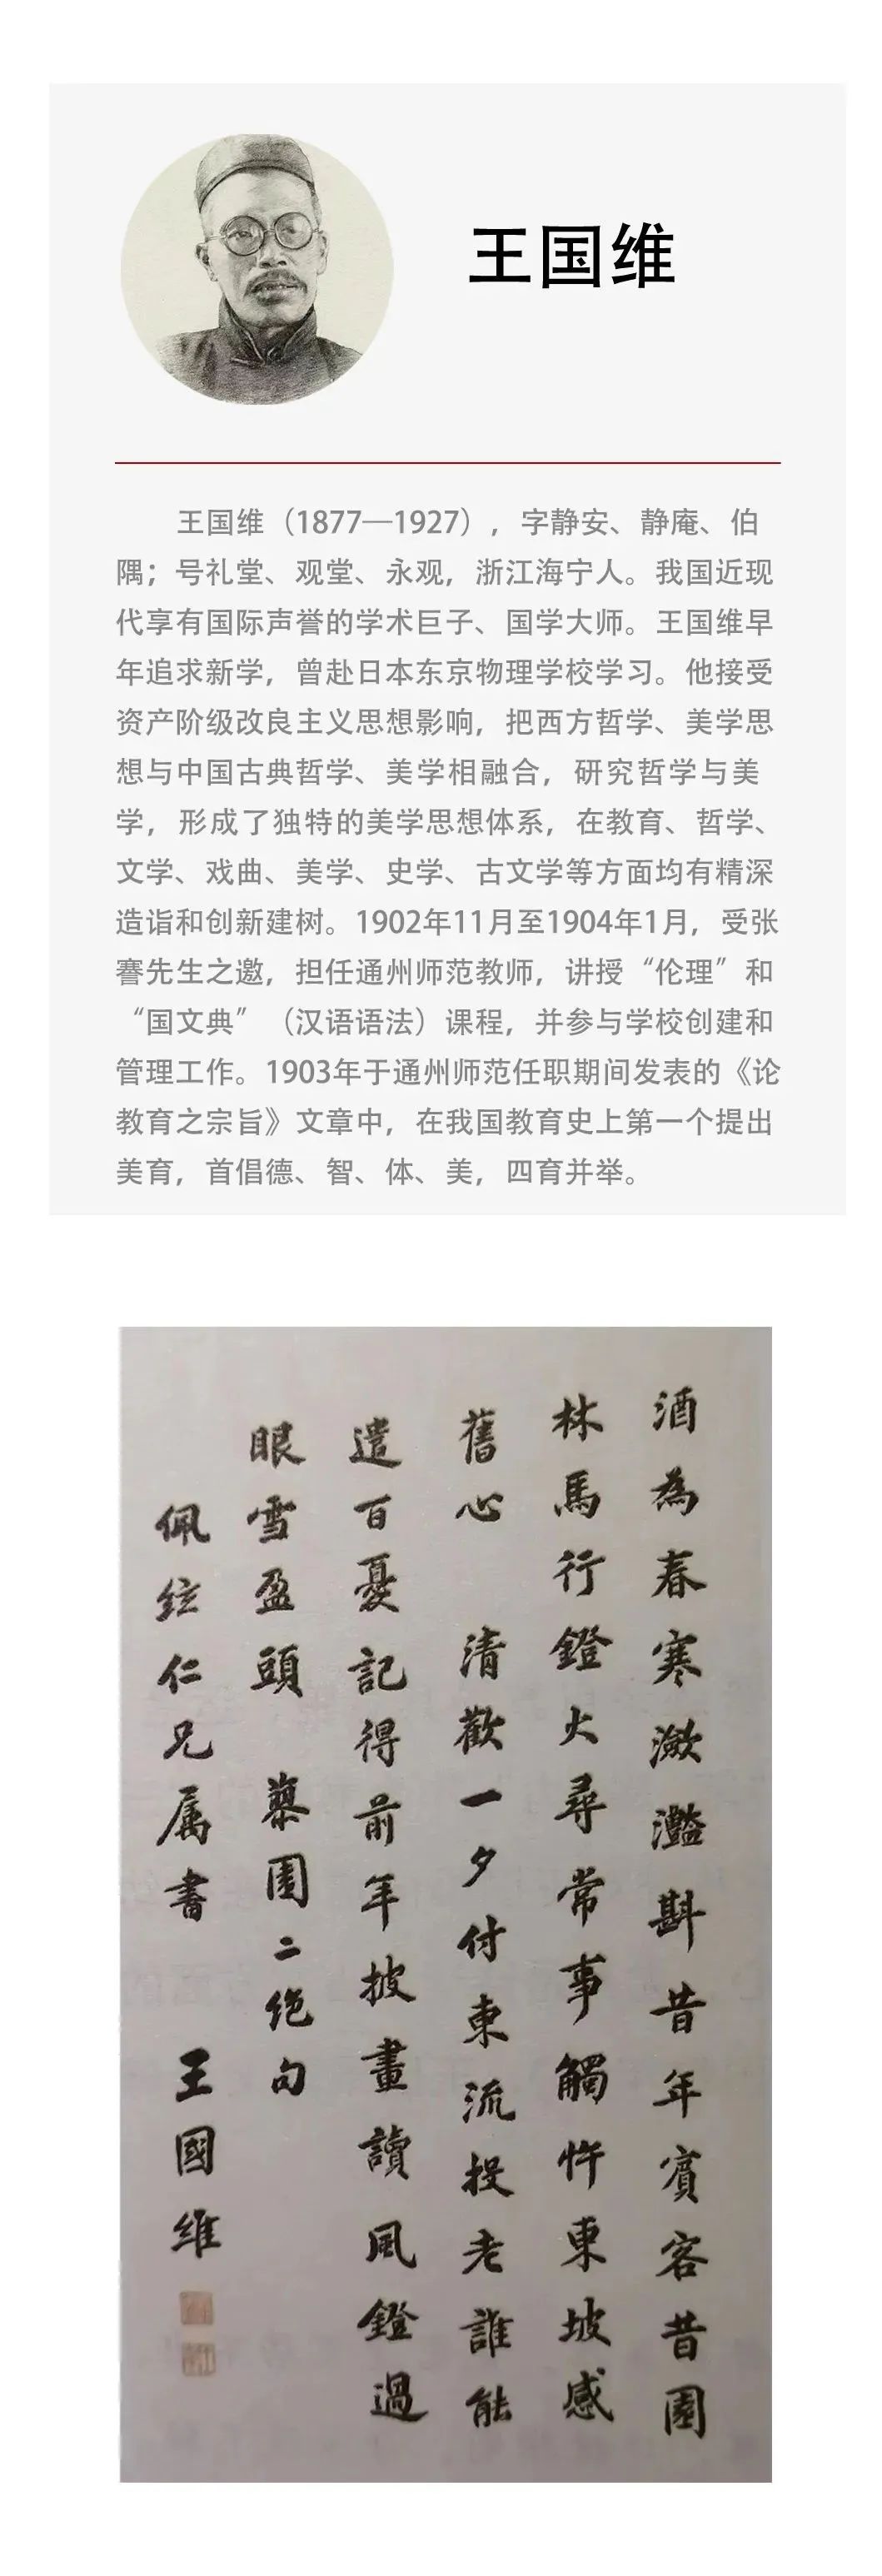 王国维
王国维（1877—1927），字静安、静庵、伯
隅；号礼堂、观堂、永观，浙江海宁人。我国近现
代享有国际声誉的学术巨子、国学大师。王国维早
年追求新学，曾赴日本东京物理学校学习。他接受
资产阶级改良主义思想影响，把西方哲学、美学思
想与中国古典哲学、美学相融合，研究哲学与美
学，形成了独特的美学思想体系，在教育、哲学、
文学、戏曲、美学、史学、古文学等方面均有精深
造诣和创新建树。1902年11月至1904年1月，受张
謇先生之邀，担任通州师范教师，讲授“伦理”和
“国文典”（汉语语法）课程，并参与学校创建和
管理工作。1903年于通州师范任职期间发表的《论
教育之宗旨》文章中，在我国教育史上第一个提出
美育，首倡德、智、体、美，四育并举。
酒為春寒潋灩斟昔年賓客昔園
林馬行鐙火尋常事觸忤東坡感
舊心 清歡一夕付東流投老誰能
遣百憂記得前年披畫讀風鐙過
眼雪盈頭 藜園二绝句
佩紘仁兄属書 王國維